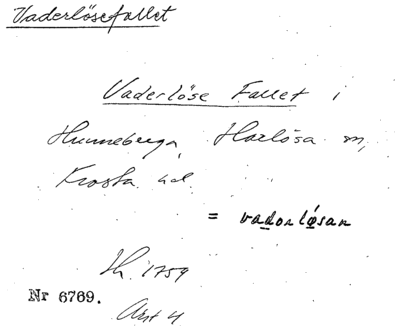 Vaderlösefallet
Vaderlöse Fallet i
Hunneberga, Harlösa sn,
Frosta hd.
= vadorlösan
Lh. 1759
Nr 6769.
Akt 4